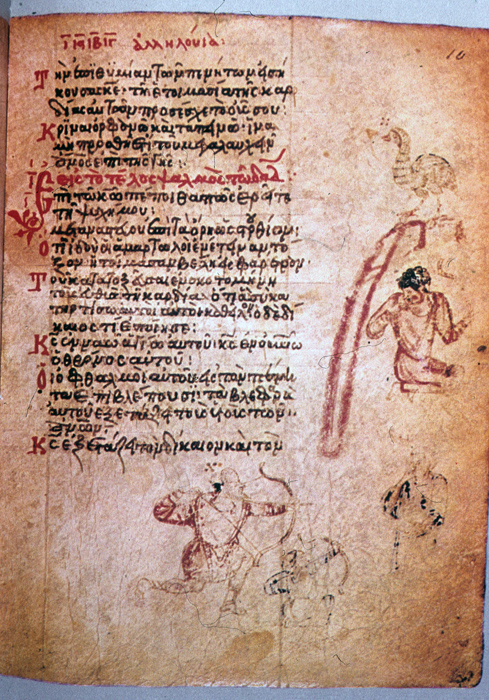 ἀλληλούϊα·
Τὴν ἐπιθυμίαν τῶν πενήτων εἰσή
κουσας κε· τὴν ἑτοιμασίαν τῆς καρ
δίας αὐτῶν προσέσχε τὸ οὖς σου·
Κρῖναι ὀρφανῶ καὶ ταπεινῶ· ἵνα
μὴ προσθῆ ἔτι τοῦ μεγαλαυχεῖν
ἄνος ἐπὶ τῆς γῆς:
Εἰς τὸ τέλος ψαλμὸς τῶ δαδ
Ἐπὶ τῶ κω πέποιθα πῶς ἐρεῖτε
τῆ ψυχῆ μου·
μεταναστεύου ἐπὶ τὰ ὄρη ὡς στρουθίον·
Ὅτι ἰδοὺ οἱ ἁμαρτωλοὶ ἐνέτειναν τό
ξον· ἡτοίμασαν βέλη εἰς φαρέτραν·
Τοῦ κατατοξεῦσαι ἐν σκοτομήνη
τοὺς εὐθεῖς τῆ καρδία· ὅτι ἃ σὺ κα
τηρτίσω αὐτοὶ καθεῖλον· ὁ δὲ δί
καιος τί ἐποίησε·
Κς ἐν ναῶ ἁγίω αὐτοῦ· κς ἐν οὐνῶ
ὁ θρόνος αὐτοῦ:
Οἱ ὀφθαλμοὶ αὐτοῦ εἰς τὸν πένη
τα ἐπιβλέπουσι· τὰ βλέφαρα
αὐτοῦ ἐξετάζει τοὺς υἱοὺς τῶν
ἀνων·
Κς ἐξετάζει τὸν δίκαιον καὶ τὸν